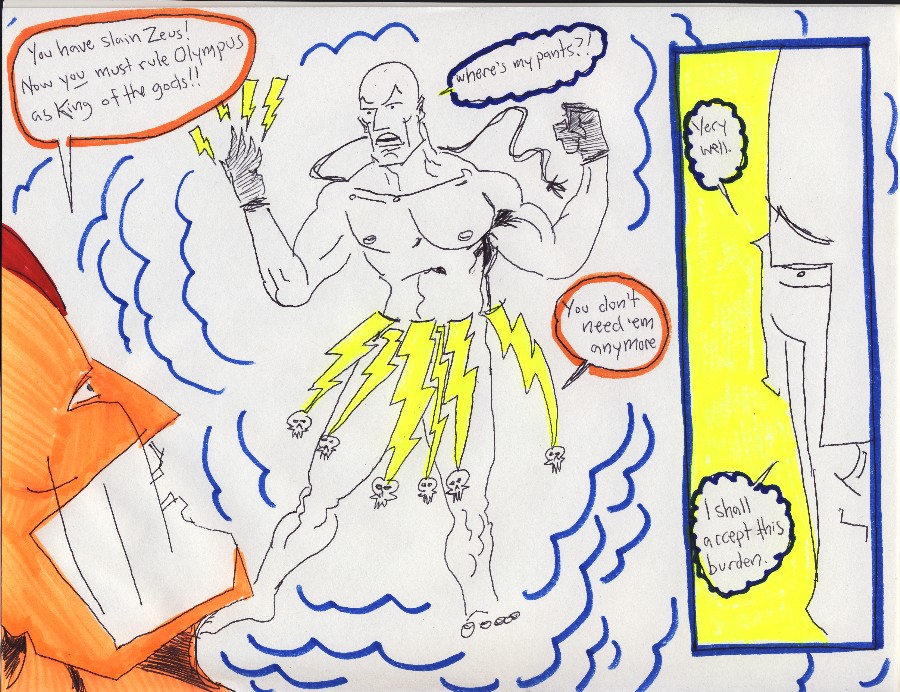 You have slain Zeus!
Now you must rule Olympus
as King of the gods!!
where's my pants?!
You don't
need 'em
anymore
Very
well.
I shall
accept this
burden.